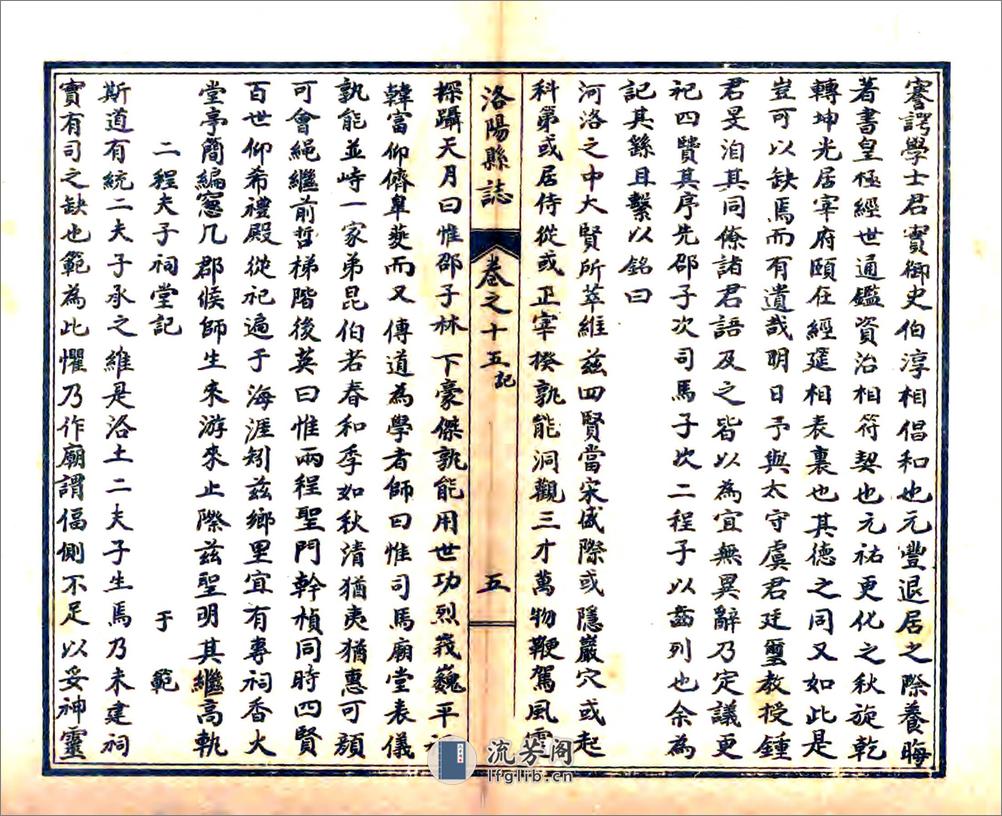 蹇諤學士君實御史伯淳相倡和也元豐退居之際養晦
著書皇極經世通鑑資治相符契也元祐更化之秋旋乾
轉坤光居宰府頤在經筵相表裏也其德之同又如此是
豈可以缺焉而有遺哉明日予與太守虞君廷璽教授鍾
君旻洎其同僚諸君語及之皆以為宜無異辭乃定議更
祀四賢其序先邵子次司馬子次二程子以齒列也余為
記其繇且繫以銘曰
河洛之中大賢所萃維茲四賢當宋盛際或隱巖穴或起
科第或居侍從或正宰揆孰能洞觀三才萬物鞭駕風霆
洛陽縣誌
卷之十五記
五
探躡天月曰惟邵子林下豪傑孰能用世功烈巍巍平視
韓富仰儕皐夔而又傳道為學者師曰惟司馬廟堂表儀
孰能並峙一家弟昆伯若春和季如秋清猶夷猶惠可顏
可曾繩繼前哲梯階後英曰惟兩程聖門幹楨同時四賢
百世仰希禮殿從祀遍于海涯矧茲鄉里宜有專祠香火
堂亭簡編窻几郡候師生來游來止際茲聖明其繼高軌
二程夫子祠堂記
于範
斯道有統二夫子承之維是洛土二夫子生焉乃未建祠
實有司之缺也範為此懼乃作廟謂偪側不足以妥神靈
流芳阁
lfglib.cn